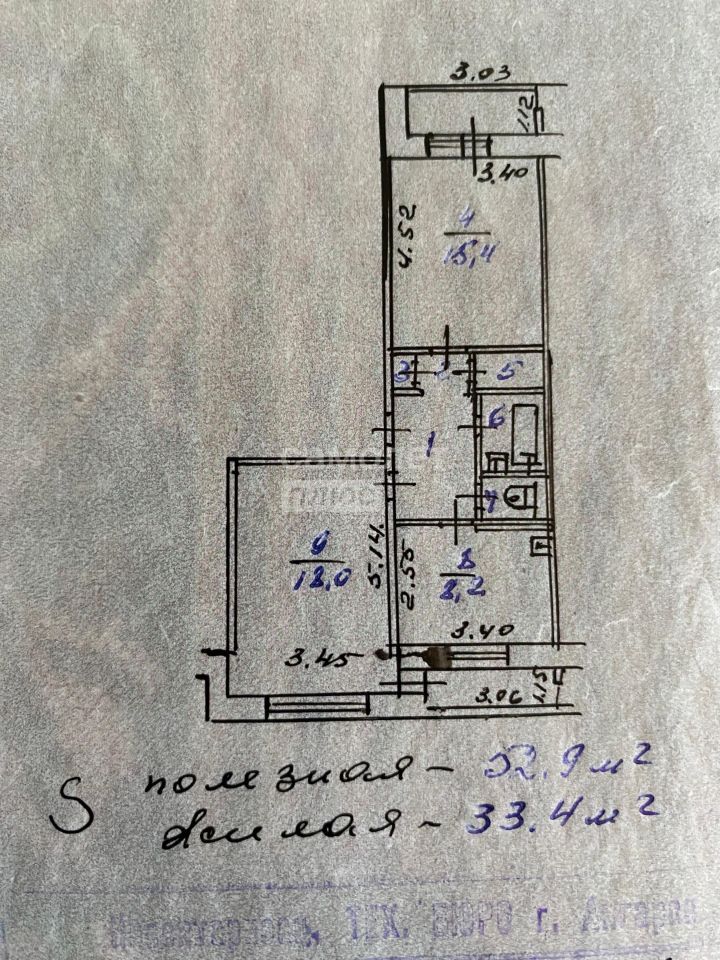 3.03
1.12
3.40
4.52
4
15,4
3
2
5
6
1
САМОЛЕТ
ПЛЮС
7
9
18,0
5.14
2.55
8
8,2
3.40
3.45
3.06
1.15
S полезная - 52.9 м²
жилая - 33.4 м²